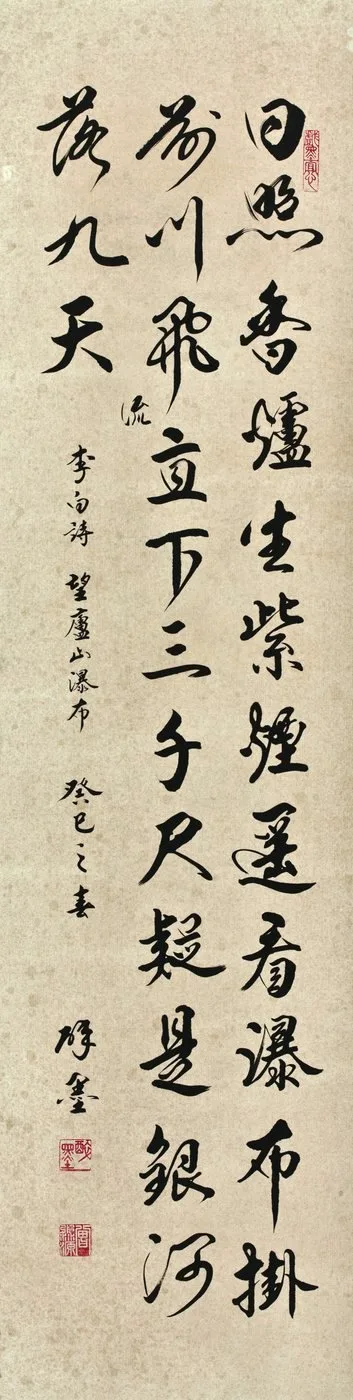 日照香爐生紫煙遥看瀑布掛
前川飛流直下三千尺疑是銀河
落九天
李白詩 望廬山瀑布 癸巳之春
醉墨
醉墨